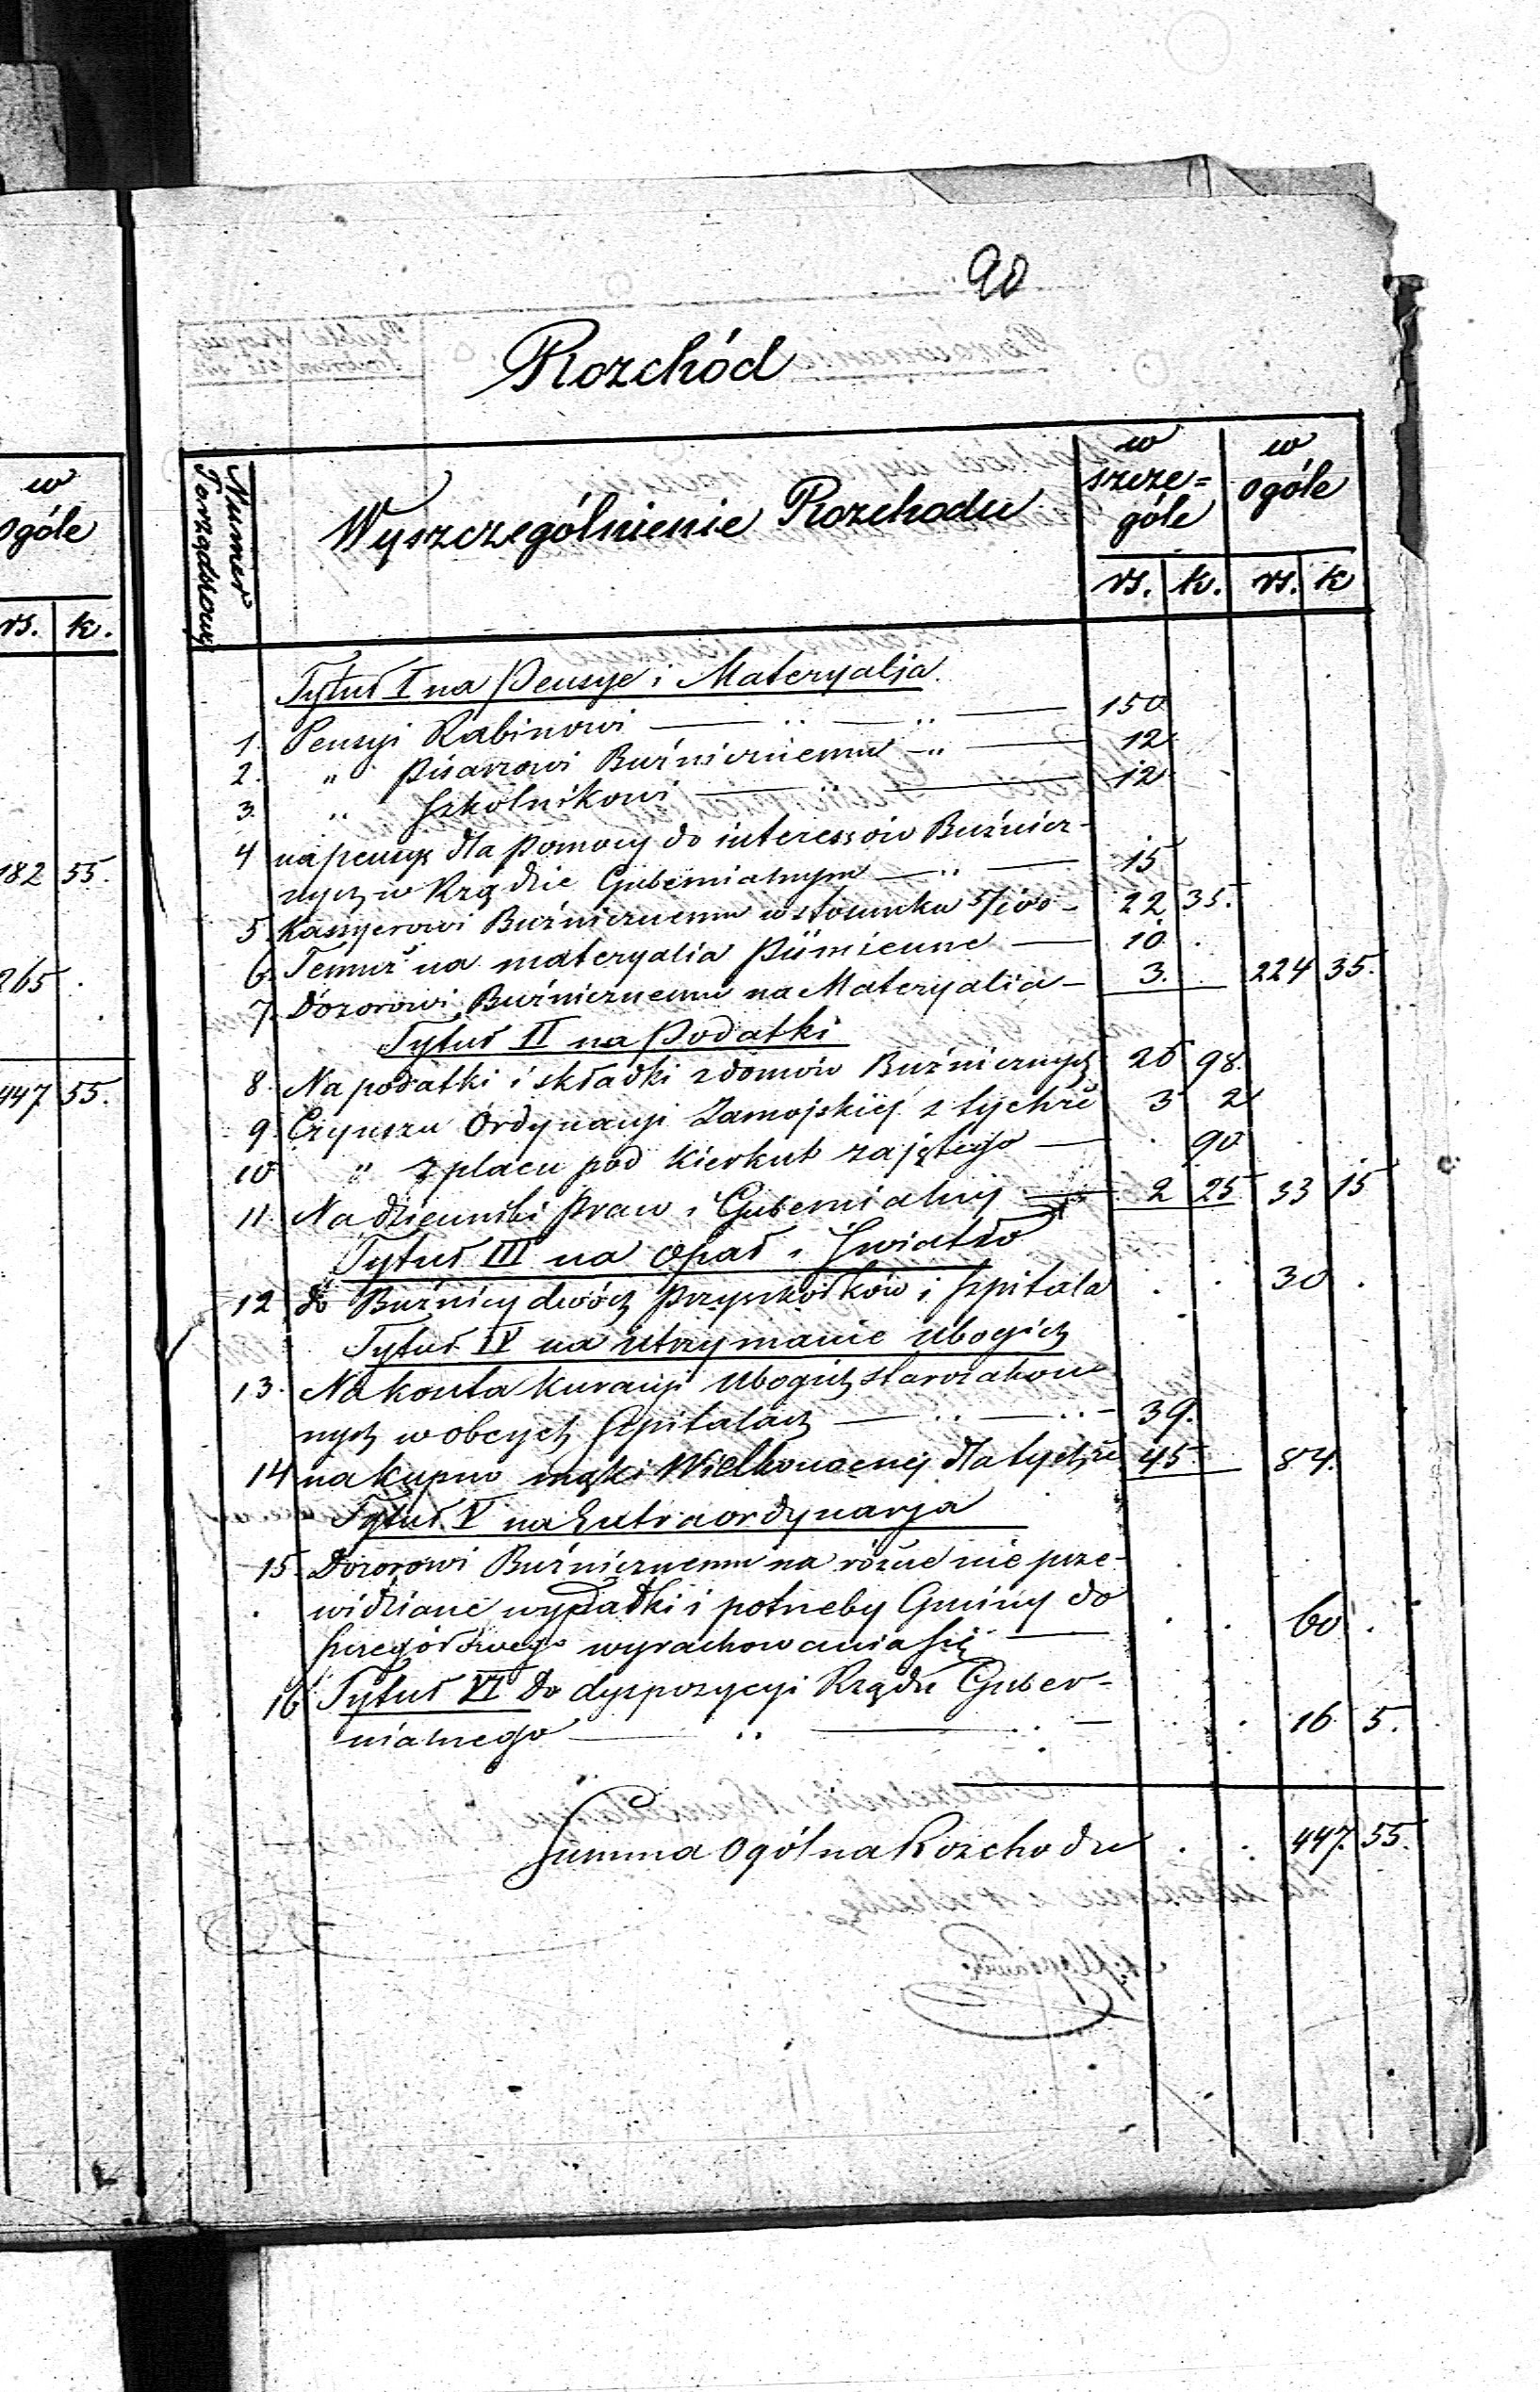 90
Rozchód
w
ogóle
rs. k.
182 55.
265 .
447. 55.
Numer Porządkowy
Wyszczególnienie Rozchodu
w szcze=
góle
w
ogóle
rs. k. rs. k
Tytuł I na Pensye i Materyalja.
1. Pensyi Rabinowi — „ — „ — 150
2. „ Pisarzowi Buźnicznemu — „ — 12
3. „ Szkolnikowi — „ — 12
4 na pensye dla pomocy do interessów Buźnicz-
nych w Rządzie Gubernialnym — „ — 15
5. Kassyerowi Buźnicznemu w stosunku 5/100 - 22 35.
6. Temuż na materyalia Piśmienne — 10 .
7. Dozorowi Buźnicznemu na Materyalia - 3. 224 35.
Tytuł II na Podatki
8. Na podatki i składki z domów Buźnicznych 26 98.
9 Czynszu Ordynacyi Zamojskiej z tychże 3 2
10 „ z placu pod Kierkut zajętego — . 90
11. Na dzienniki Praw i Gubernialny — 2 25 33 15
Tytuł III na Opał i Światło
12 do Buźnicy dwóch Przyszkołków i Szpitala . . 30 .
Tytuł IV na utrzymanie ubogich
13. Na koszta kuracyi Ubogich starozakon
nych w obcych Szpitalach — „ — „ - 39.
14 na kupno mąki Wielkonocnej dla tychże 45. 84.
Tytuł V na Extraordynarja
15. Dozorowi Buźnicznemu na różne nie prze-
widziane wypadki i potrzeby Gminy do
szczegółowego wyrachowania się — . . 60 .
16 Tytuł VI Do dyspozycyi Rządu Guber-
nialnego — „ — . . 16 5.
Summa Ogólna Rozchodu . . 447. 55.